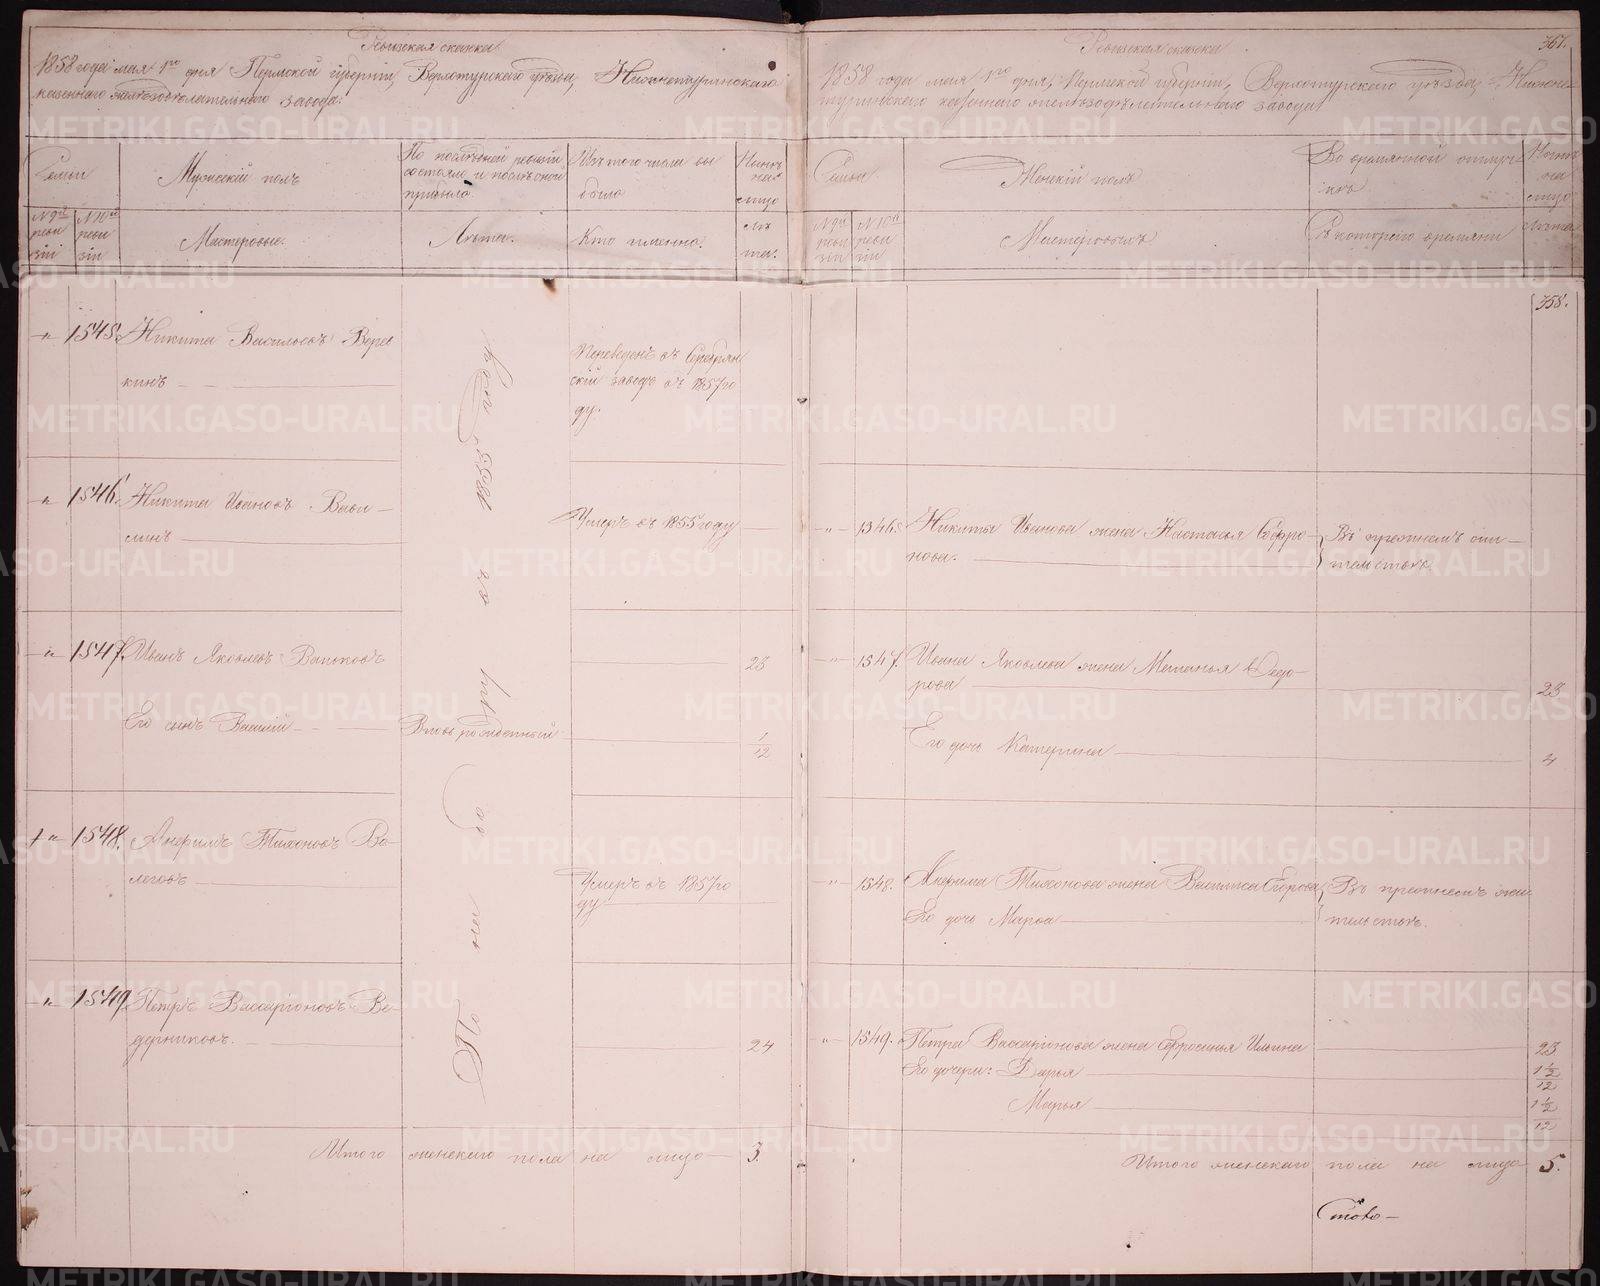 Ревизская сказка
1858 года мая 1го дня Пермской губернии, Верхотурского уезда, Нижнетуринскаго
казеннаго железоделательнаго завода:
Семьи
Мужескiй полъ
По последней ревизiи
состояло и после оной
прибыло
Изъ того числа вы
было
Ныне
на
лицо
№ 9й
реви
зiи
№ 10й
реви
зiи
Мастеровые.
Лета.
Кто именно.
Ле
та.
„ 1545. Никита Васильевъ Верев
кинъ
Переведенъ въ Серебрян
скiй заводъ въ 1857 го
ду.
„ 1546. Никита Ивановъ Вави
линъ
Умеръ въ 1855 году
„ 1547. Иванъ Яковлевъ Ваньковъ
23
Его сынъ Василiй
Вновь рожденный
1/12
„ 1548. Тихоновъ Ва-
леговъ
Умеръ въ 1857 го
ду
„ 1549. Петръ Вассарiоновъ Ве-
дерниковъ.
24
По на об 1858 года
Итого женскаго пола на лицо 3.
367.
Ревизская сказка
1858 года мая 1го дня, Пермской губернiи, Верхотурскаго уезда, Нижне-
туринскаго казеннаго железоделательнаго завода
Семьи
Женскiй полъ
Во временной отлуч
ке
Ныне
на
лицо
№ 9й
реви
зiи
№ 10й
реви
зiи
Мастеровыхъ
Съ котораго времяни
Лета
358.
„ 1546. Никиты Иванова жена Настасья Софро-
нова.
Въ прежнемъ жи-
тельстве
„ 1547. Ивана Яковлева жена Меланья Федо-
рова
23
Его дочь Катерина
4
„ 1548. Тихонова жена Василиса Егорова
Его дочь Марья
Въ прежнемъ жи
тельстве.
„ 1549. Петра Вассарiонова жена Ефросинья Ильина
23
Его дочери: Дарья
1 1/2 / 12
Марья
1 1/2 / 12
Итого женскаго пола на лицо 5.
METRIKI.GASO-URAL.RU